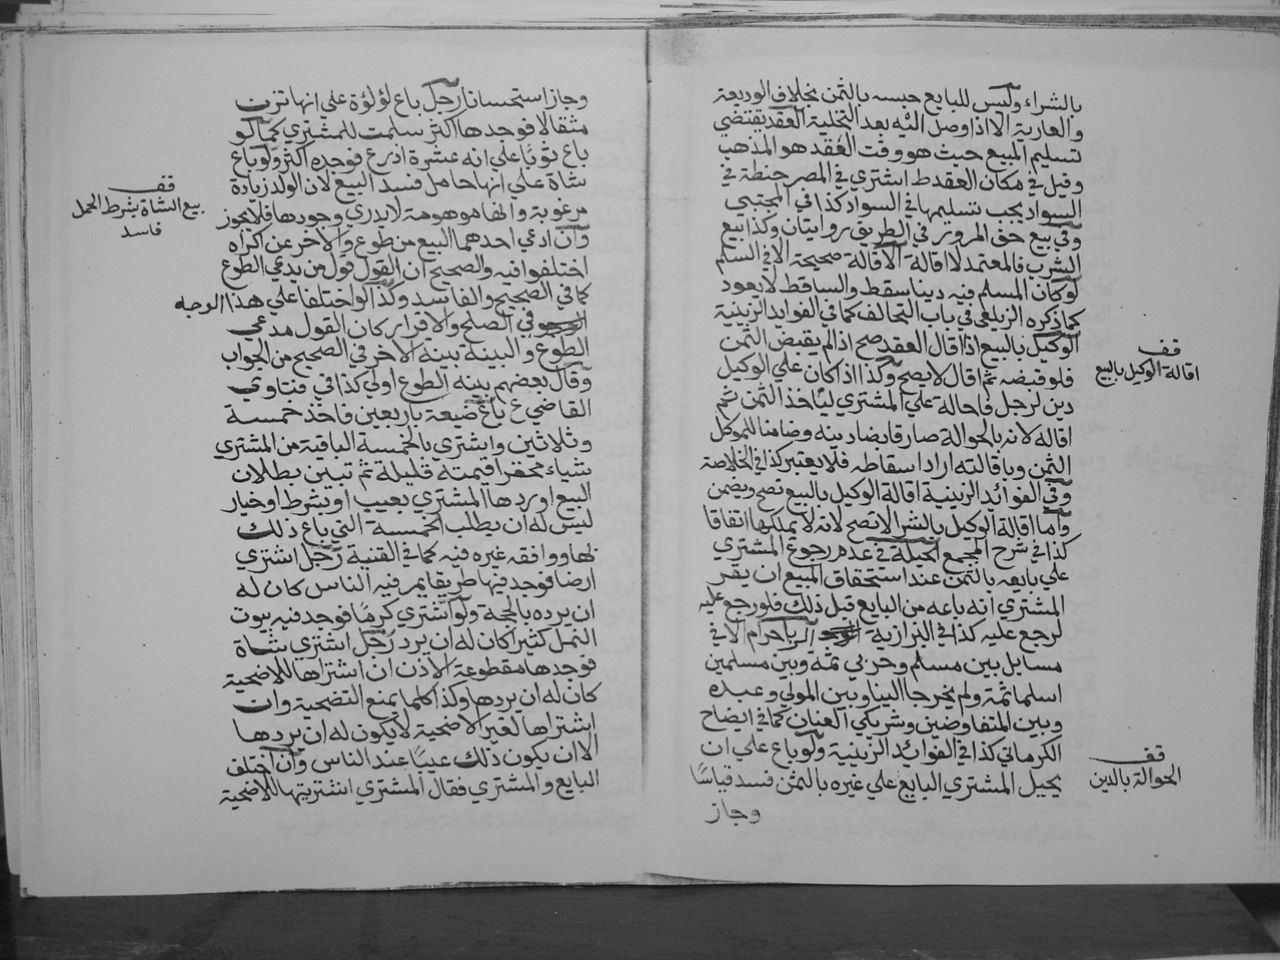 بالشراء وليس للبايع حبسه بالثمن بخلاف الوديعة
والعارية الا اذا وصل اليه بعد التخلية العقد يقتضي
تسليم المبيع حيث هو وقت العقد هو المذهب
وقيل في مكان العقد ط اشتري في المصر حنطة في
السواد يجب تسليمها في السواد كذا في المجتبي
وفي بيع حق المرور في الطريق روايتان وكذا بيع
الشرب فالمعتمد لا اقالة الاقالة صحيحة الا في السلم
لو كان المسلم فيه دينا سقط والساقط لا يعود
كما ذكره الزيلعي في باب التحالف كما في الفوايد الزينية
الوكيل بالبيع اذا اقال العقد صح اذا لم يقبض الثمن
فلو قبضه ثم اقال لا يصح وكذا اذا كان علي الوكيل
دين لرجل فاحاله علي المشتري ليأخذ الثمن ثم
اقاله لانه بالحوالة صار قابضا دينه وضامنا للموكل
الثمن وباقالته اراد اسقاطه فلا يعتبر كذا في الخلاصة
وفي الفوائد الزينية اقالة الوكيل بالبيع تصح ويضمن
واما اقالة الوكيل بالشرا لا تصح لانه لا يملكها اتفاقا
كذا في شرح المجمع الحيلة في عدم رجوع المشتري
علي بايعه بالثمن عند استحقاق المبيع ان يقر
المشتري انه باعه من البايع قبل ذلك فلو رجع عليه
لرجع عليه كذا في البزازية الربا حرام الا في
مسايل بين مسلم وحربي ثمة وبين مسلمين
اسلما ثمة ولم يخرجا الينا وبين المولي وعبده
وبين المتفاوضين وشريكي العنان كما في ايضاح
الكرماني كذا في الفوائد الزينية ولو باع علي ان
يحيل المشتري البايع علي غيره بالثمن فسد قياسا
وجاز
قف
اقالة الوكيل بالبيع
قف
الحوالة بالدين
وجاز استحسانا رجل باع لؤلؤة علي انها تزن
مثقالا فوجدها اكثر سلمت للمشتري كما لو
باع ثوبا علي انه عشرة اذرع فوجده اكثر ولو باع
شاة علي انها حامل فسد البيع لان الولد زيادة
مرغوبة وانها موهومة لا يدري وجودها فلا يجوز
وان ادعي احدهما البيع من طوع والاخر عن اكراه
اختلفوا فيه والصحيح ان القول قول من يدعي الطوع
كما في الصحيح والفاسد وكذا لو اختلفا علي هذا الوجه
في الصلح والاقرار كان القول مدعي
الطوع والبينة بينة الاخر في الصحيح من الجواب
وقال بعضهم بينة الطوع اولي كذا في فتاوي
القاضي ع باع ضيعة باربعين فاخذ خمسة
وثلاثين واشتري بالخمسة الباقية من المشتري
شياء محقرا قيمته قليلة ثم تبين بطلان
البيع او ردها المشتري بعيب او بشرط او خيار
ليس له ان يطلب الخمسة التي باع ذلك
بها ووافقه غيره فيه كما في القنية رجل اشتري
ارضا فوجد فيها طريقا يمر فيه الناس كان له
ان يرده بالحجة ولو اشتري كرما فوجد فيه بيوت
النمل كثيرا كان له ان يرد رجل اشتري شاة
فوجدها مقطوعة الاذن ان اشتراها للاضحية
كان له ان يردها وكذا كلما يمنع التضحية وان
اشتراها لغير الاضحية لا يكون له ان يردها
الا ان يكون ذلك عيبا عند الناس وان اختلف
البايع والمشتري فقال المشتري اشتريتها للاضحية
قف
بيع الشاة بشرط الحمل
فاسد